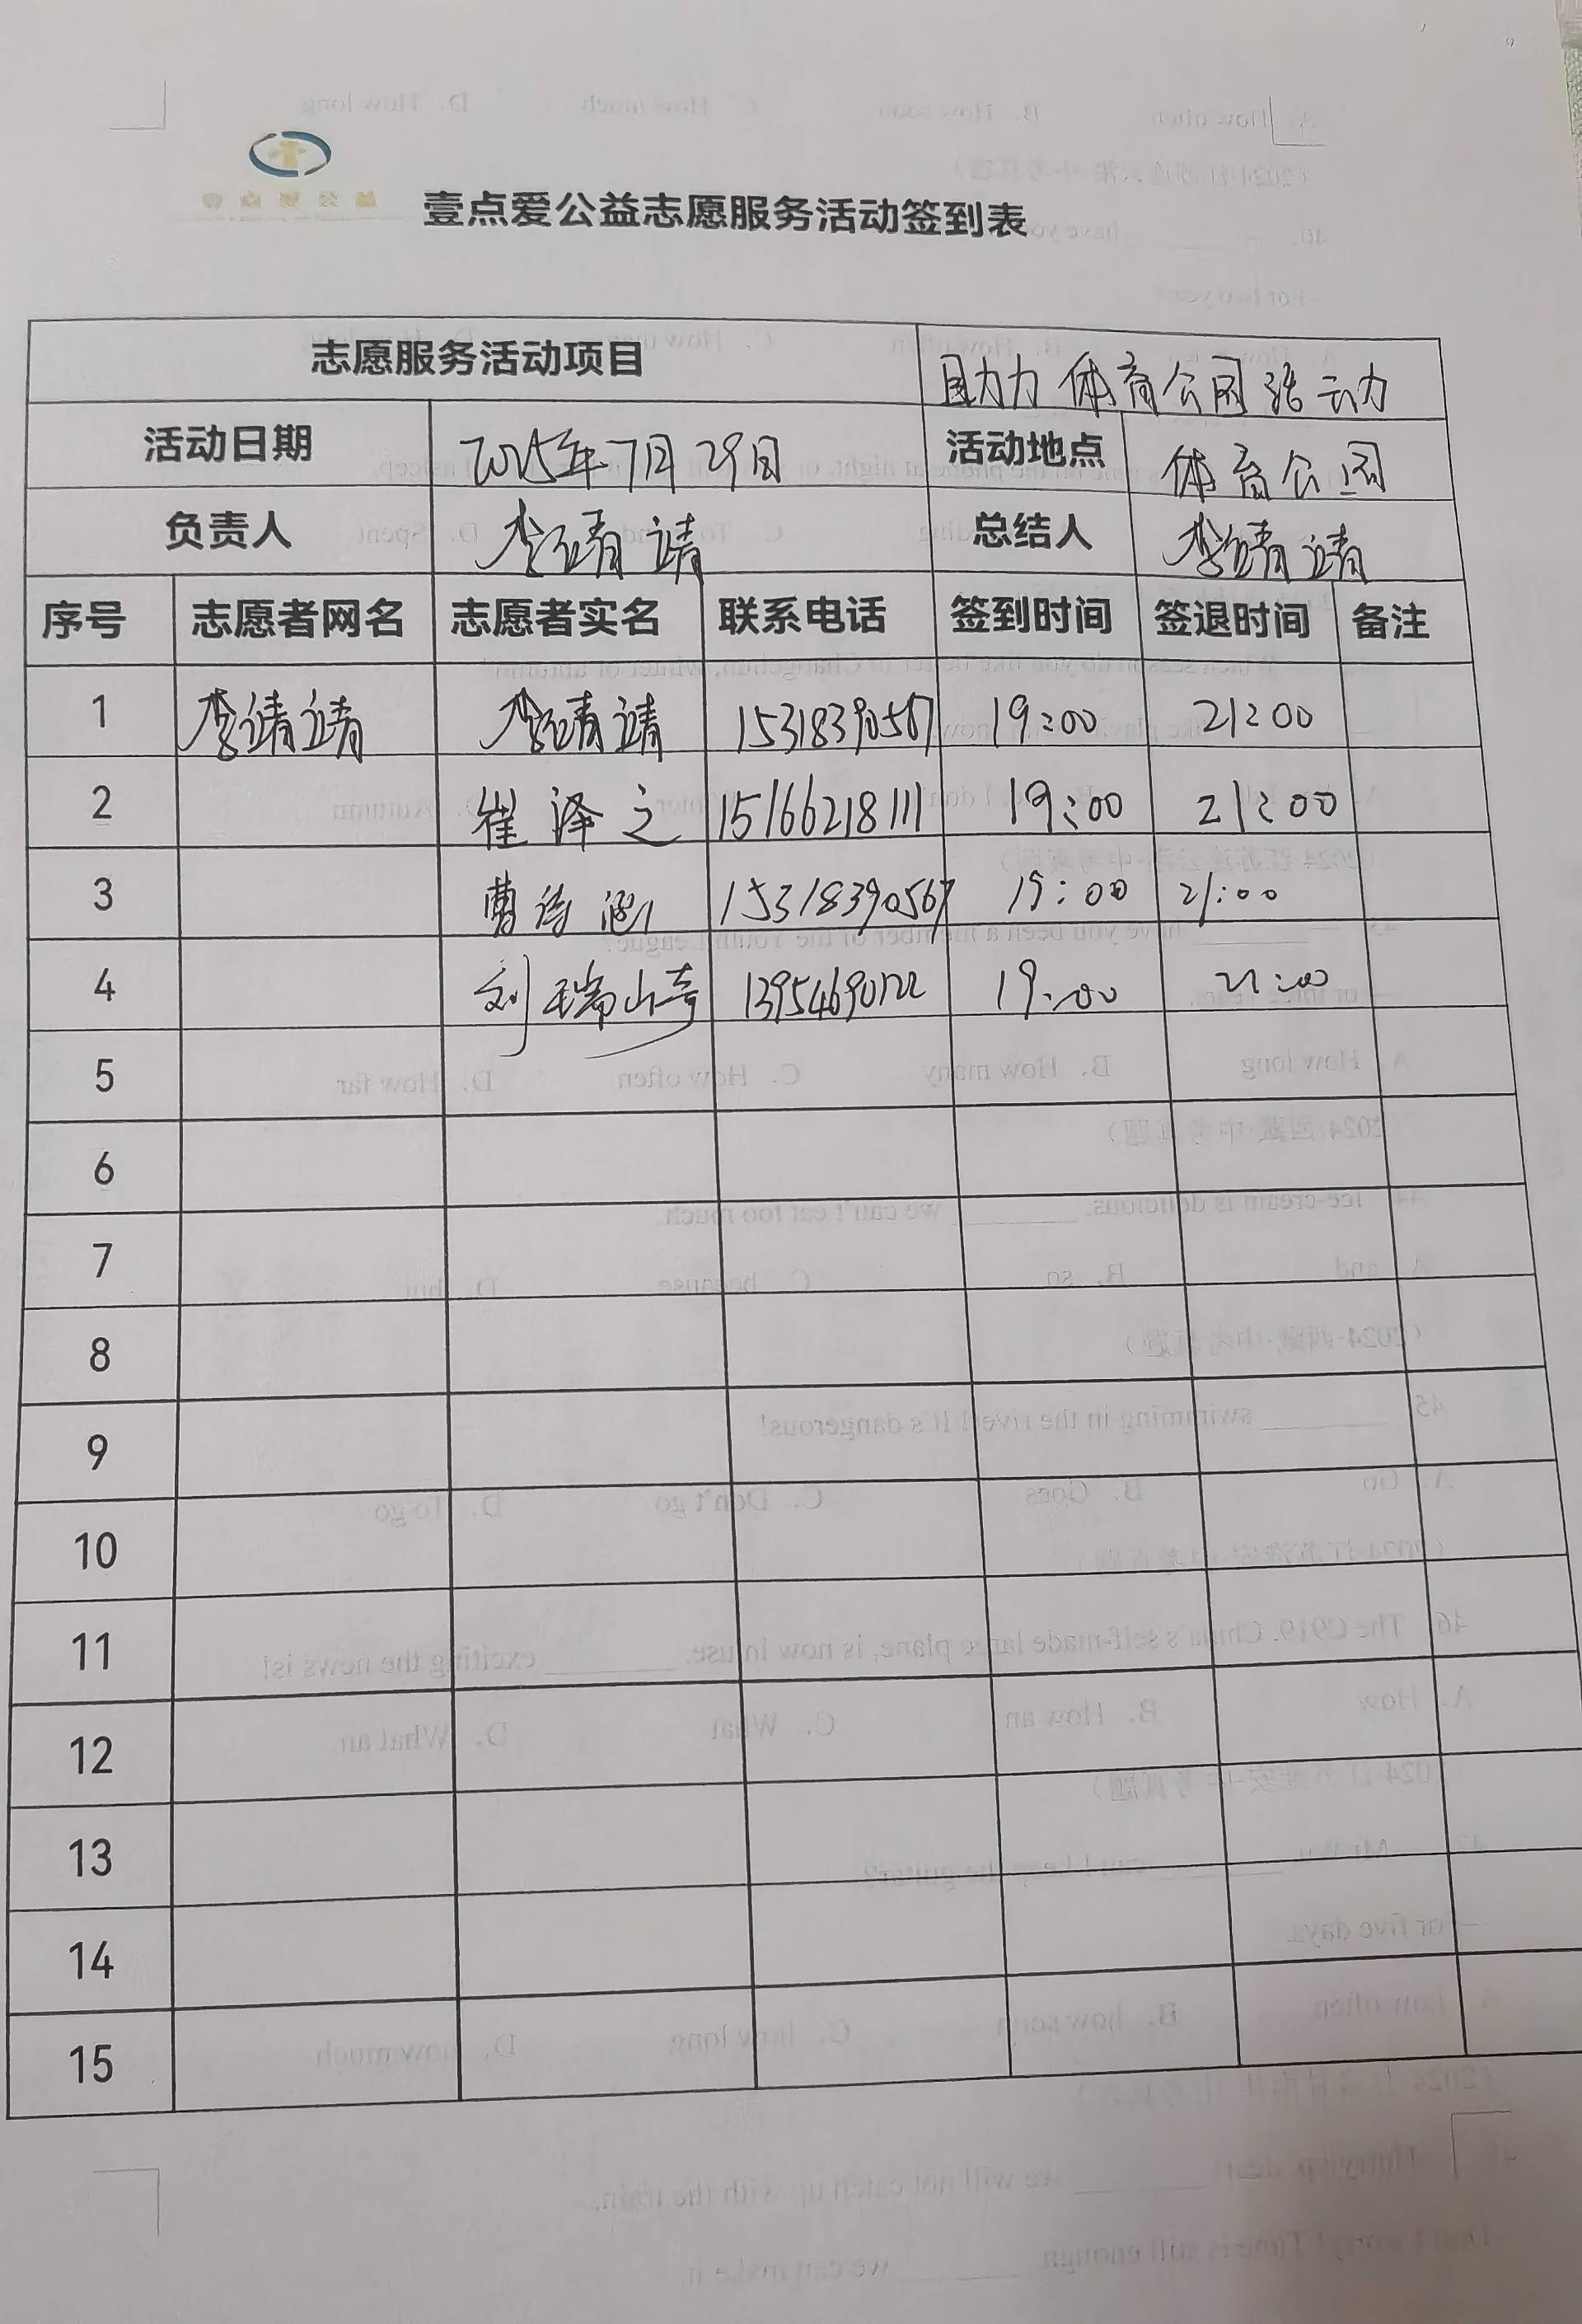 壹点爱公益志愿服务活动签到表
志愿服务活动项目 助力体育公园活动
活动日期 2025年7月29日 活动地点 体育公园
负责人 李靖靖 总结人 李靖靖
序号 志愿者网名 志愿者实名 联系电话 签到时间 签退时间 备注
1 李靖靖 李靖靖 15318390567 19:00 21:00
2 崔泽之 15166218111 19:00 21:00
3 曹诗涵 15318390567 19:00 21:00
4 刘瑞琦 19:00 21:00
5
6
7
8
9
10
11
12
13
14
15